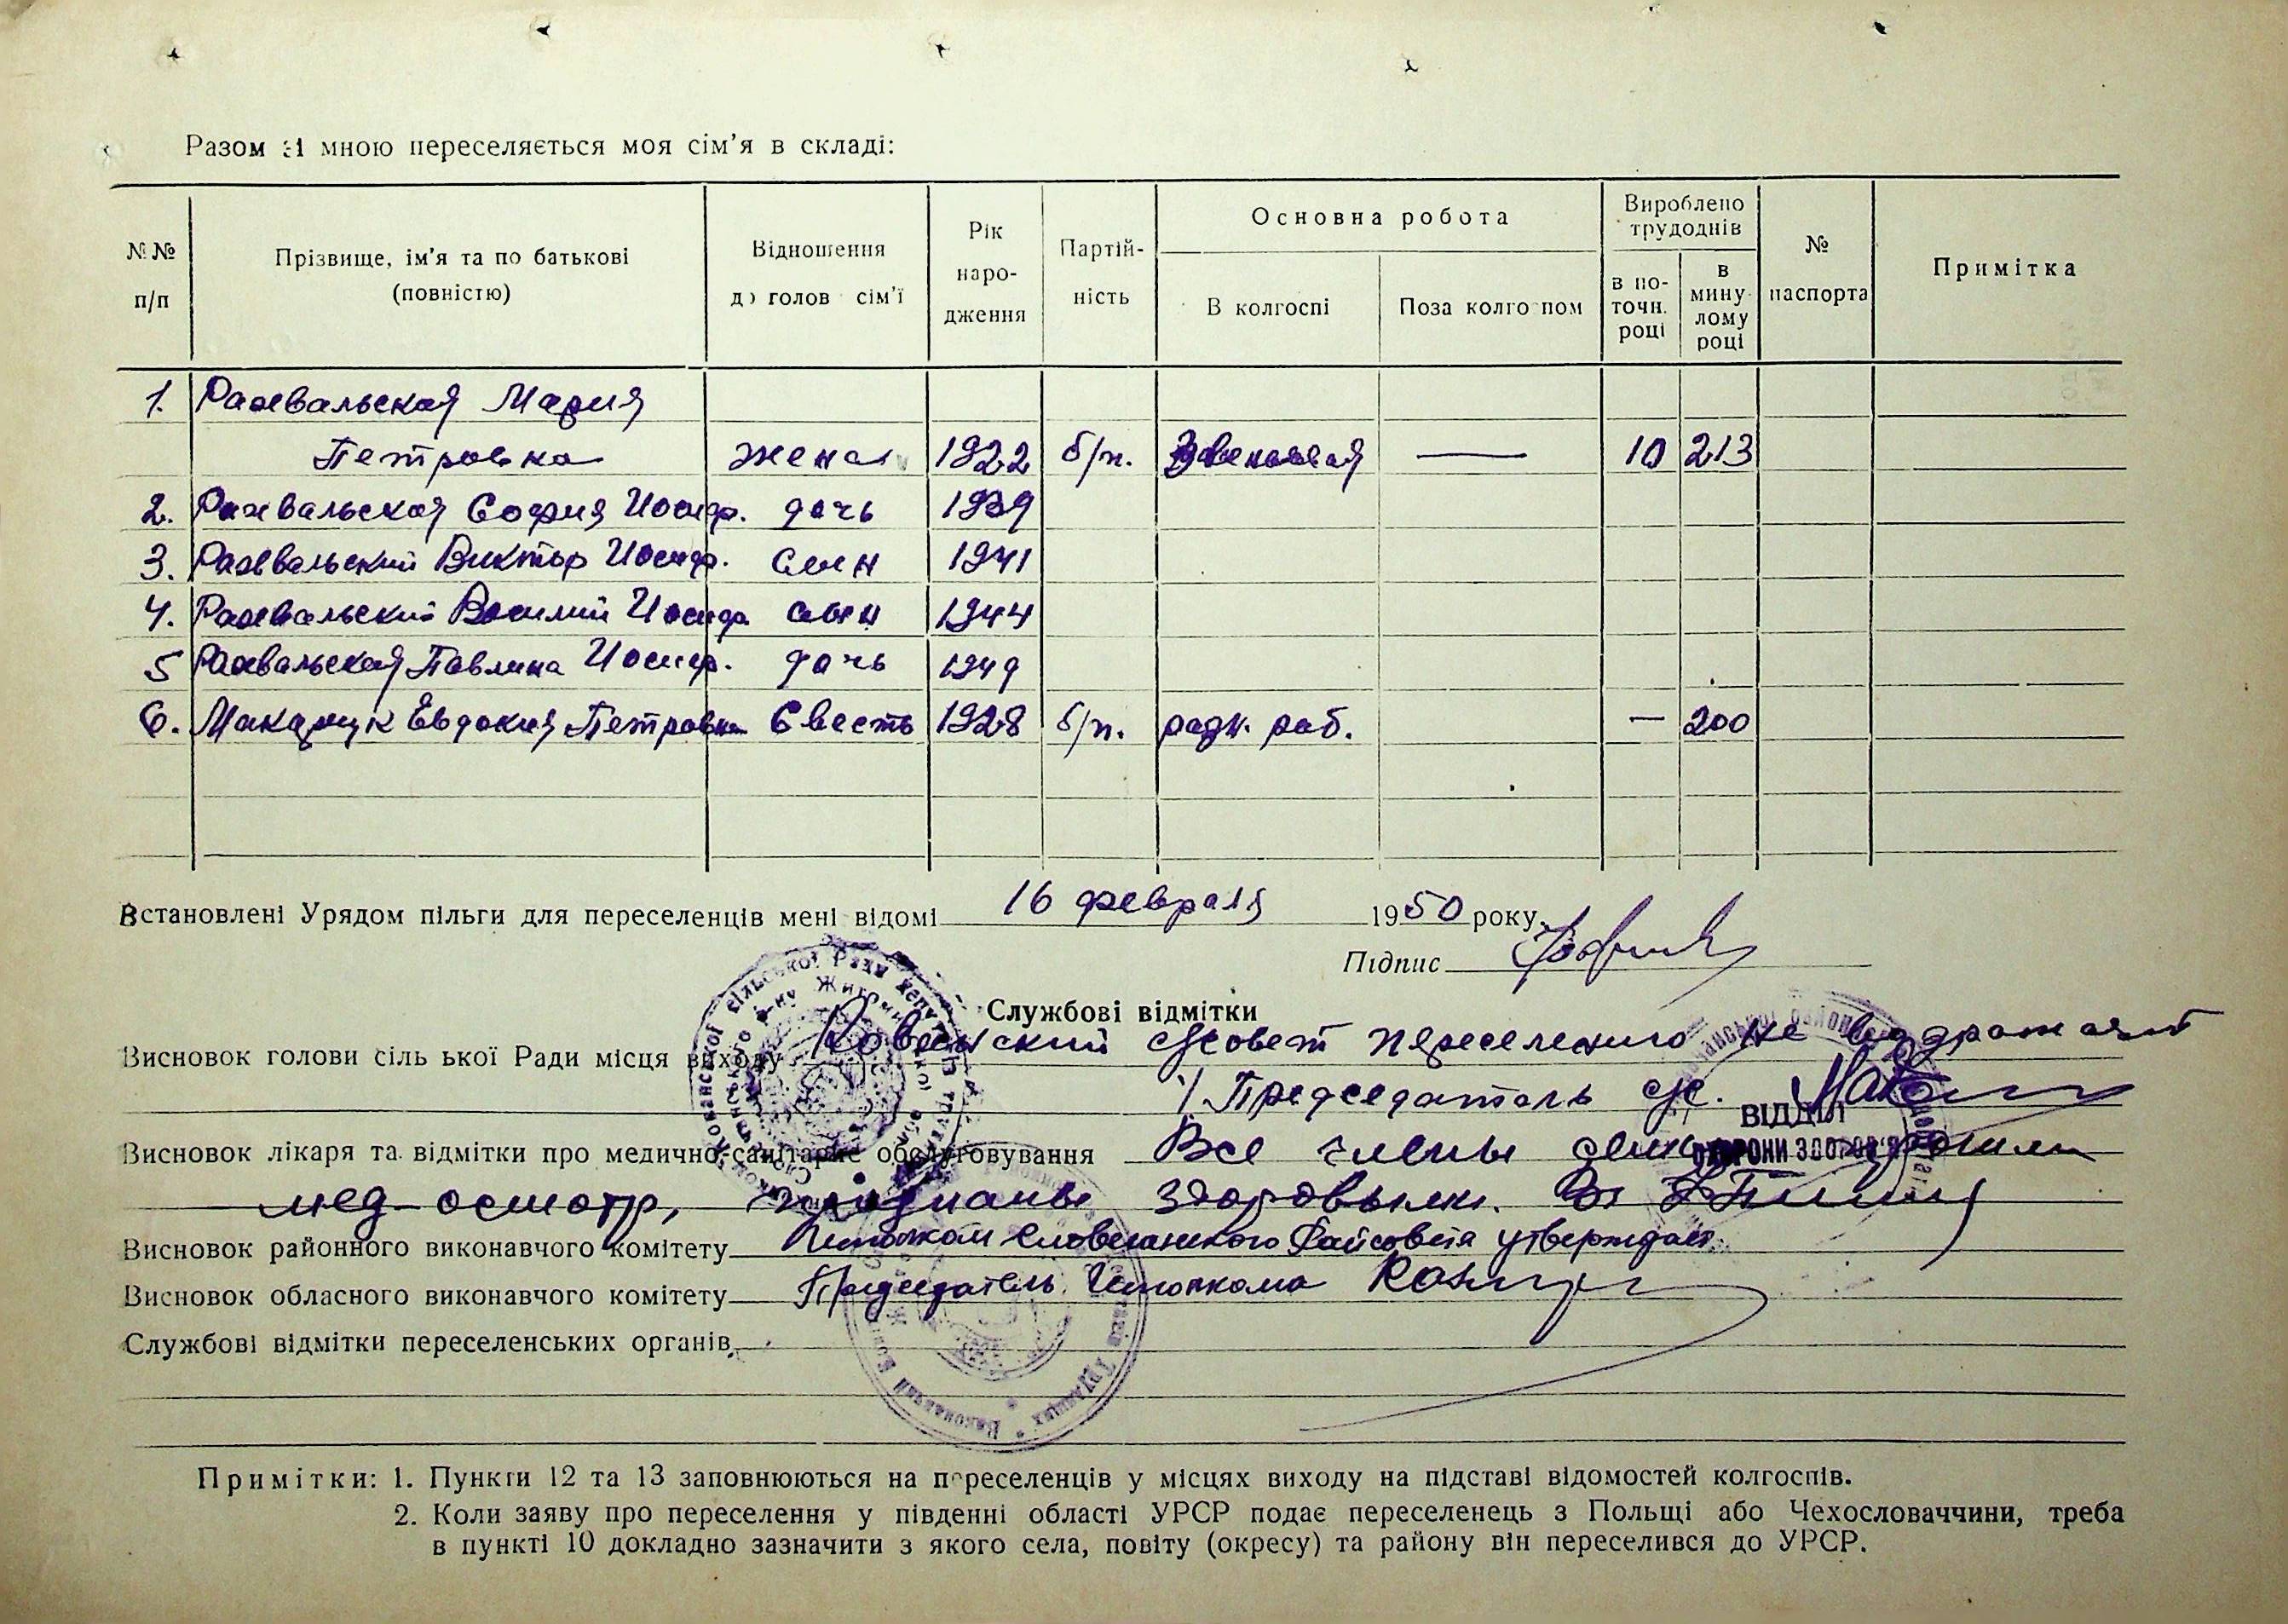 Разом зі мною переселяється моя сім'я в складі:
№№ п/п
Прізвище, ім'я та по батькові (повністю)
Відношення до голов сім'ї
Рік наро-дження
Партій-ність
Основна робота
В колгоспі
Поза колго пом
Вироблено трудоднів
в по-точн. році
в мину-лому році
№ паспорта
Примітка
1. Рахвальская Мария
Петровна жена 1922 б/п. Звеньевая — 10 213
2. Рахвальская София Иосиф. дочь 1939
3. Рахвальский Виктор Иосиф. сын 1941
4. Рахвальский Василий Иосиф. сын 1944
5 Рахвальская Павлина Иосиф. дочь 1949
6. Макарчук Евдокия Петровна Свесть 1928 б/п. рядн. раб. — 200
Встановлені Урядом пільги для переселенців мені відомі 16 февраля 1950 року.
Підпис
Службові відмітки
Висновок голови сіль ької Ради місця виходу ссовет переселению не возражает
Председатель сс.
ВІДДІЛ
Висновок лікаря та відмітки про медично-санітарне обслуговування Все члены семьи прошли
ОХОРОНИ ЗДОРОВ'Я
мед-осмотр, признаны здоровыми.
Висновок районного виконавчого комітету Исполком Словечанского Райсовета утверждает
Висновок обласного виконавчого комітету Председатель Исполкома
Службові відмітки переселенських органів
Примітки: 1. Пункти 12 та 13 заповнюються на переселенців у місцях виходу на підставі відомостей колгоспів.
2. Коли заяву про переселення у південні області УРСР подає переселенець з Польщі або Чехословаччини, треба
в пункті 10 докладно зазначити з якого села, повіту (окресу) та району він переселився до УРСР.